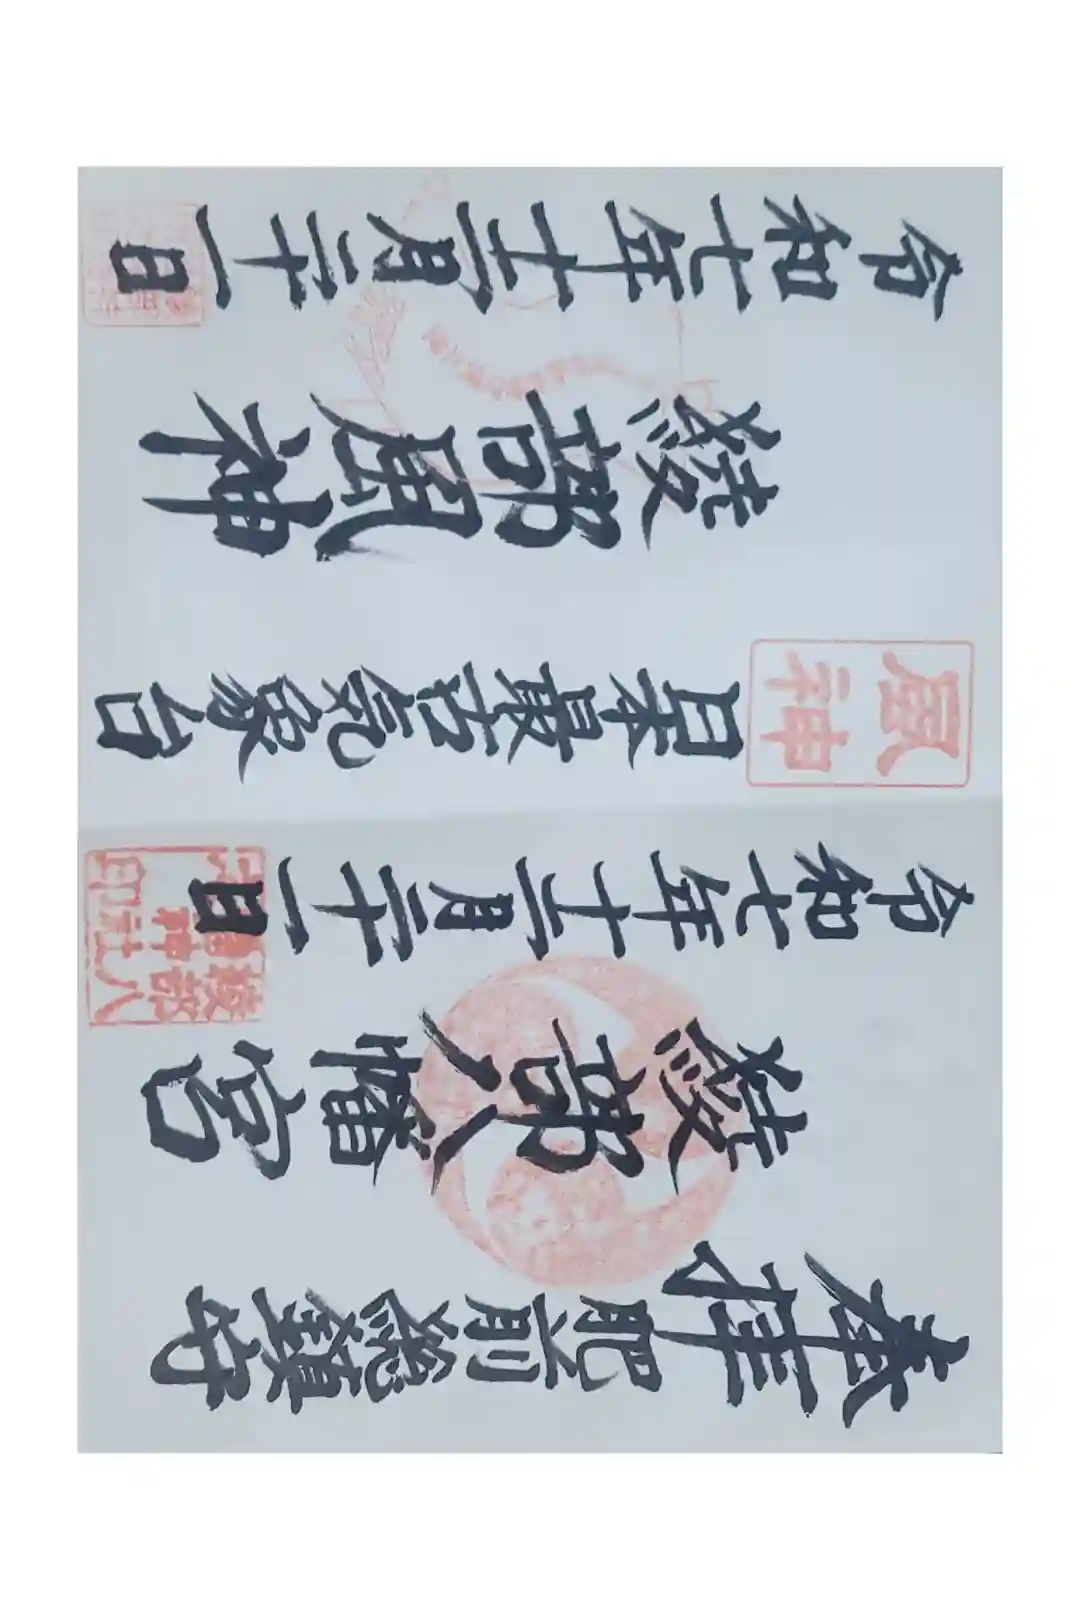 奉拝 肥前總鎮守
綾部八幡宮
令和七年十二月二十一日
綾部八
幡神社
印
風神
日本最古気象台
綾部風神
令和七年十二月二十一日